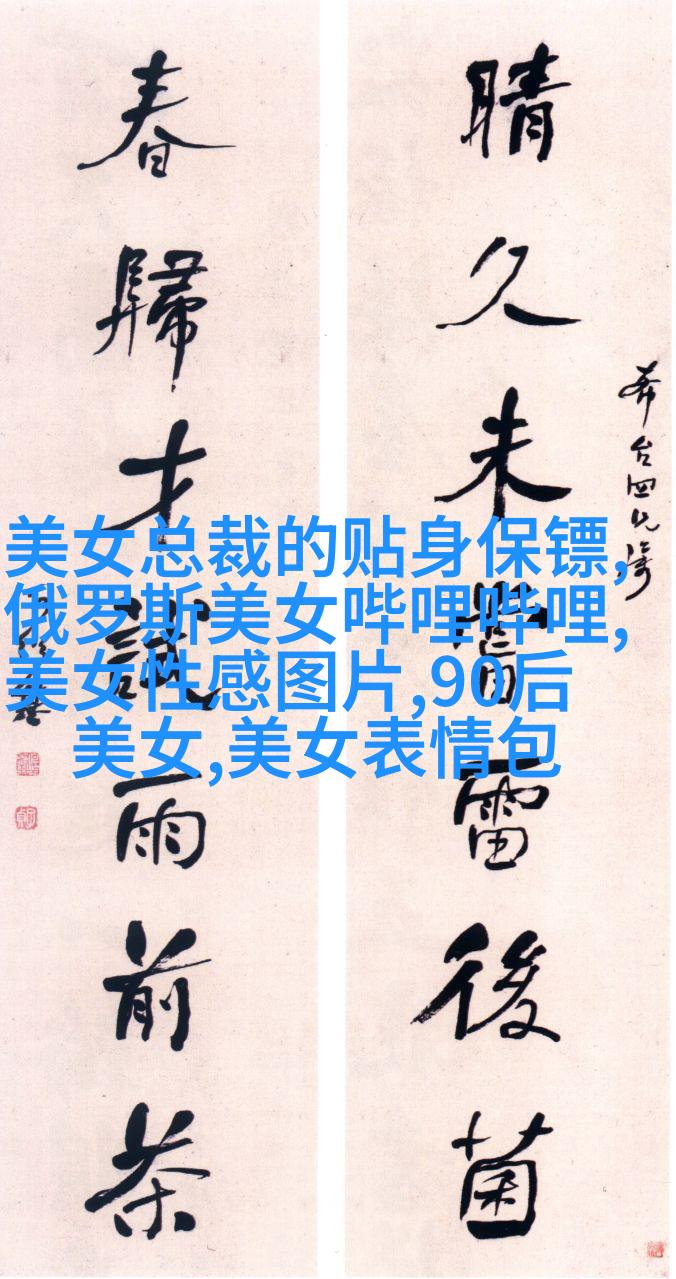 晴久未嘗雷後菌
台四兄
春歸才試雨前茶
美女总裁的贴身保镖,
俄罗斯美女哔哩哔哩,
美女性感图片,90后
美女,美女表情包